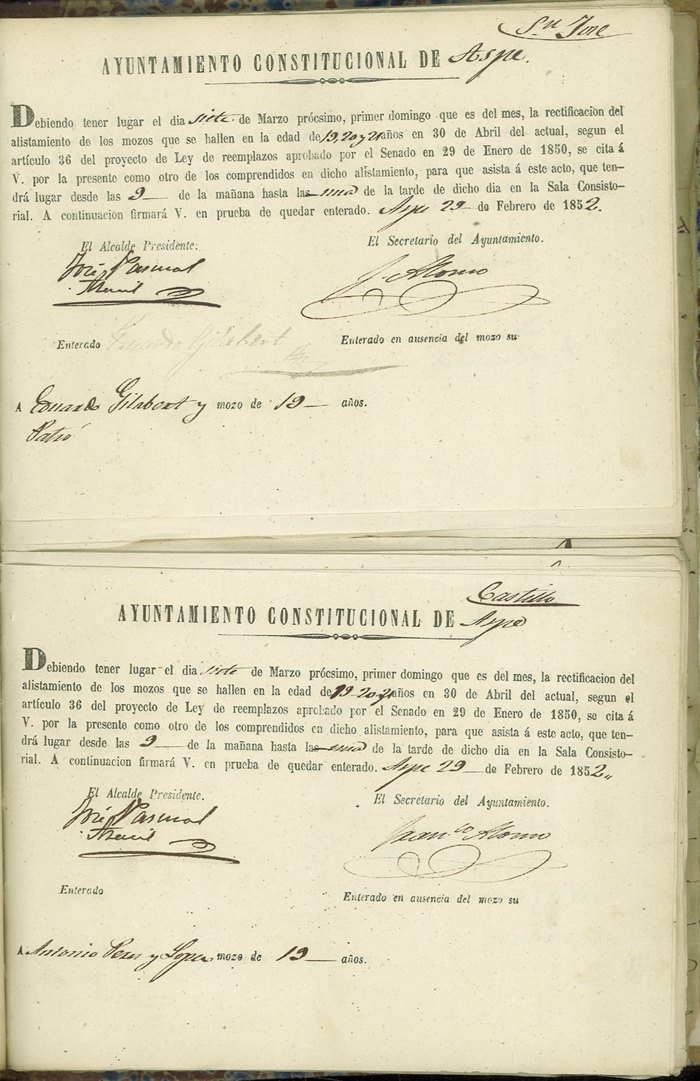 Sn Jose
AYUNTAMIENTO CONSTITUCIONAL DE Aspe.
Debiendo tener lugar el dia siete de Marzo prócsimo, primer domingo que es del mes, la rectificacion del
alistamiento de los mozos que se hallen en la edad de 19, 20 y 21 años en 30 de Abril del actual, segun el
artículo 36 del proyecto de Ley de reemplazos aprobado por el Senado en 29 de Enero de 1850, se cita á
V. por la presente como otro de los comprendidos en dicho alistamiento, para que asista á este acto, que ten-
drá lugar desde las 9 de la mañana hasta las una de la tarde de dicho dia en la Sala Consisto-
rial. A continuacion firmará V. en prueba de quedar enterado. Aspe 29 de Febrero de 1852.
El Alcalde Presidente. El Secretario del Ayuntamiento.
José Pascual Alonso
Enterado Gilabert Enterado en ausencia del mozo su
A Eduardo Gilabert y mozo de 19 años.
Castillo
AYUNTAMIENTO CONSTITUCIONAL DE Aspe
Debiendo tener lugar el dia siete de Marzo prócsimo, primer domingo que es del mes, la rectificacion del
alistamiento de los mozos que se hallen en la edad de 19 20 y 21 años en 30 de Abril del actual, segun el
artículo 36 del proyecto de Ley de reemplazos aprobado por el Senado en 29 de Enero de 1850, se cita á
V. por la presente como otro de los comprendidos en dicho alistamiento, para que asista á este acto, que ten-
drá lugar desde las 9 de la mañana hasta las una de la tarde de dicho dia en la Sala Consisto-
rial. A continuacion firmará V. en prueba de quedar enterado. Aspe 29 de Febrero de 1852
El Alcalde Presidente. El Secretario del Ayuntamiento.
José Pascual Franco Alonso
Enterado Enterado en ausencia del mozo su
A Antonio Perez y Lopez mozo de 19 años.